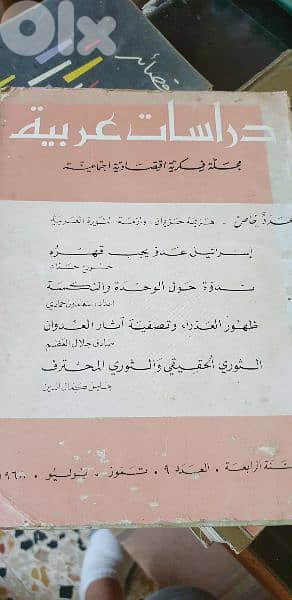 olx
دراسات عربية
مجلة فكرية اقتصادية اجتماعية
عدد خاص - هزيمة حزيران وأزمة الثورة العربية
إسرائيل عدو يجب قهره
ندوة حول الوحدة والنكسة
ظهور العذراء وتصفية آثار العدوان
صادق جلال العظم
الثوري الحقيقي والثوري المحترف
السنة الرابعة . العدد ٩ . تموز . يوليو .